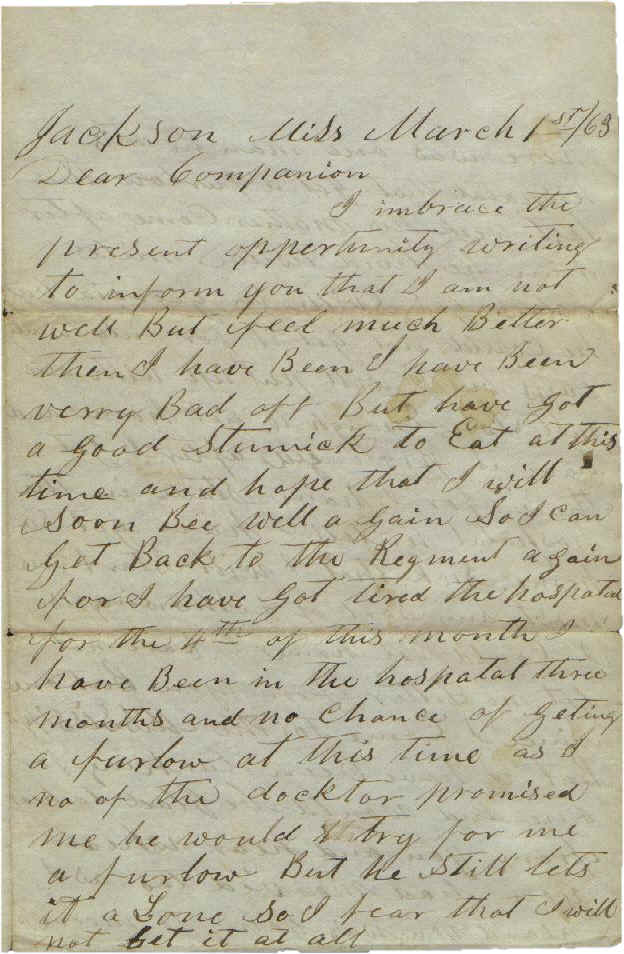 Jackson Miss March 1st/63
Dear Companion
I imbrace the
present oppertunity writing
to inform you that I am not
well But feel much Better
then I have Been I have Been
verry Bad off But have got
a good Stumick to Eat at this
time and hope that I will
Soon Bee well a gain So I can
get Back to the Regment again
for I have got tired the hospatal
for the 4th of this month I
have Been in the hospatal three
months and no Chance of geting
a furlow at this time as I
no of the docktor promised
me he would try for me
a furlow But he Still lets
it a Lone So I fear that I will
not Get it at all